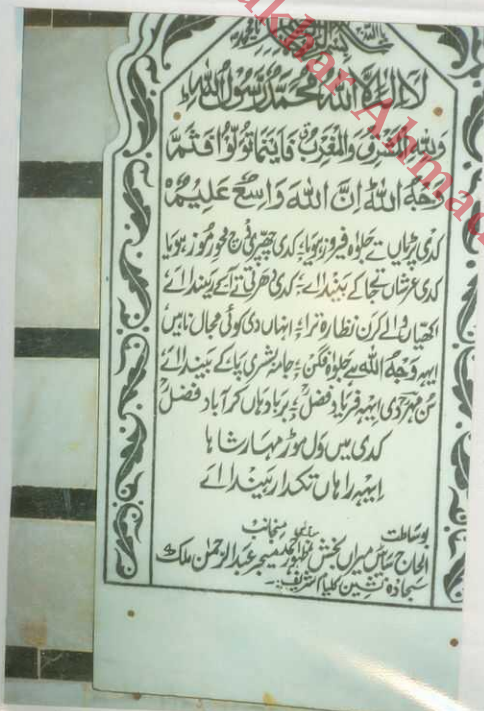 یااللہ یامحمد
لَا اِلٰهَ اِلَّا اللهُ مُحَمَّدٌ رَّسُوْلُ اللهِ
وَلِلّٰهِ الْمَشْرِقُ وَالْمَغْرِبُ فَاَيْنَمَا تُوَلُّوْا فَثَمَّ
وَجْهُ اللهِ اِنَّ اللهَ وَاسِعٌ عَلِيْمٌ
کدی پڑیاں تے جلوہ فیروز ہویا، کدی چھپر نچ محو رموز ہویا
کدی عرشاں تے جا کے بیندا اے، کدی دھرتی تے آکے ریندا اے
اکھیاں والے کرن نظارہ ترا، انہاں دی کوئی مجال ناہیں
ایہہ وَجْهُ الله ہے جلوہ فگن، جامہ بشری پا کے بیندا اے
سن مہر دی ایہہ فریاد فضل، برباد ہاں کر آباد فضل
کدی میں ول موڑ مہار شاہا
ایہہ راہاں تکدا ریندا اے
بوساطت منجانب
الحاج سائیں میراں بخش میجر عبدالرحمٰن ملک
سجادہ نشین کلیام شریف
Ahmad